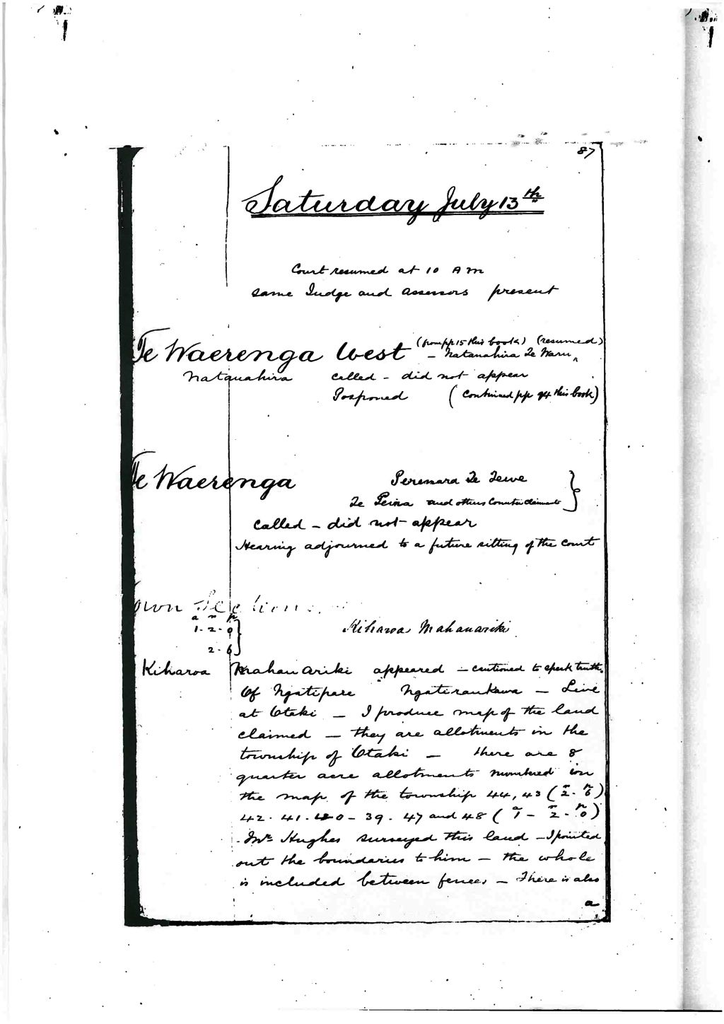 87
Saturday July 13th
Court resumed at 10 A m
same Judge and Assessors present
Te Waerenga West (from pp 15 this book) (resumed)
– Natanahira Te Waru
Natanahira called – did not appear
Postponed (Continued pp 94 this book)
Te Waerenga Te
Te and others Counter claimants
called – did not appear
Hearing adjourned to a future sitting of the Court
Town Sections
a r p
1 - 2 - 0
2 - 6
Kiharoa Mahauariki
Kiharoa Mahauariki appeared – cautioned to speak truth
Of Ngatipare Ngatiraukawa – Live
at Otaki – I produce map of the land
claimed – they are allotments in the
township of Otaki – there are 8
quarter acre allotments numbered on
the map of the township 44, 43 (2r - 6p)
42 - 41 - 40 - 39 - 47 and 48 (1a - 2r - 0p)
Mr Hughes surveyed this land – I pointed
out the boundaries to him – the whole
is included between fences – There is also
a